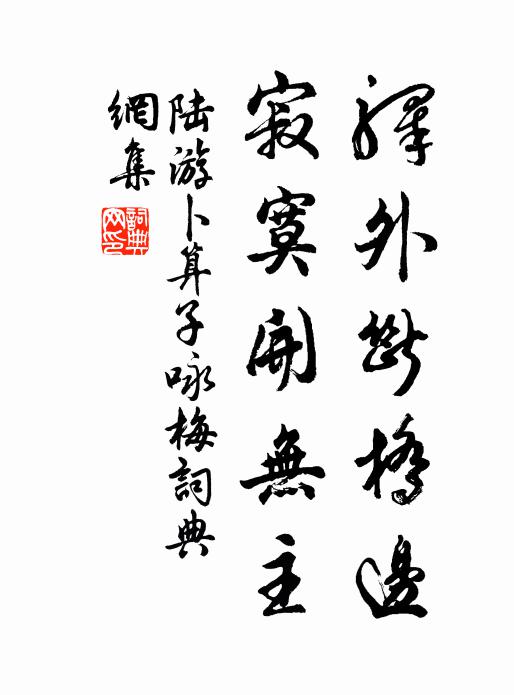 驛外斷橋邊
寂寞開無主
陆游卜算子咏梅詞典
網集
詞典
网印